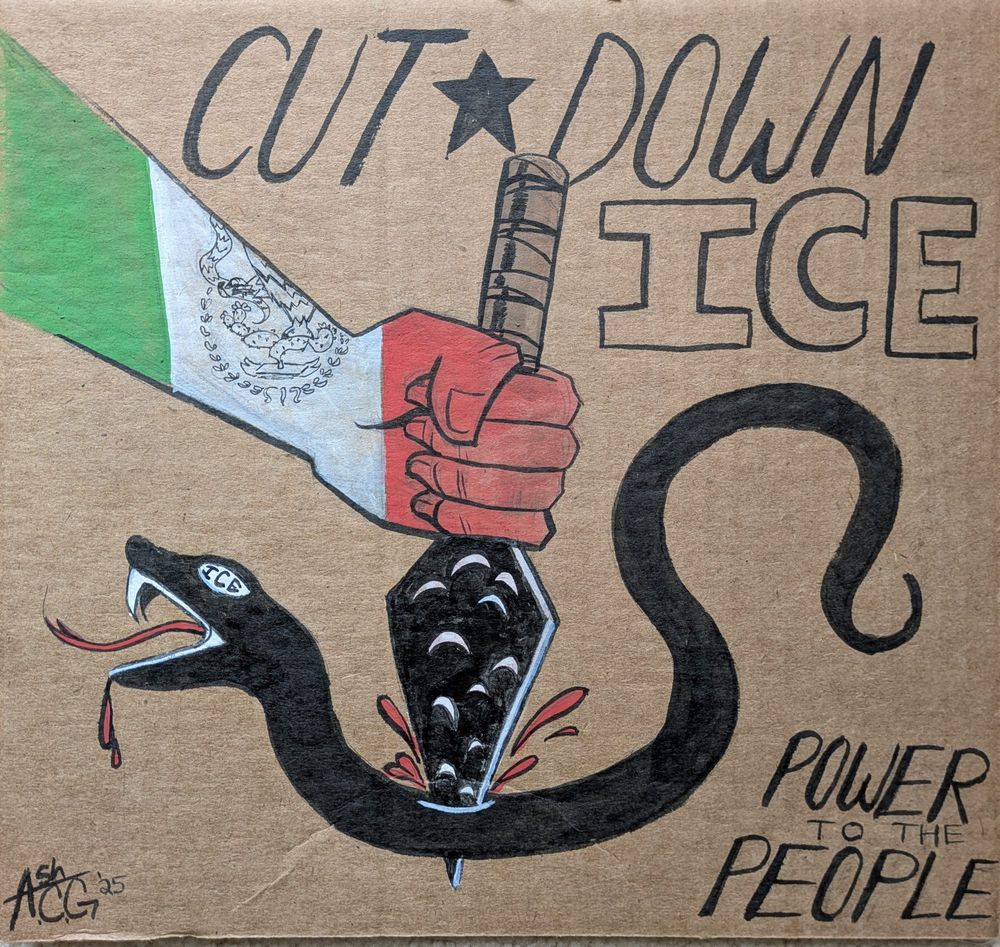 CUT★DOWN
ICE
ICE
POWER
TO THE
PEOPLE
Ash
A.C.G '25